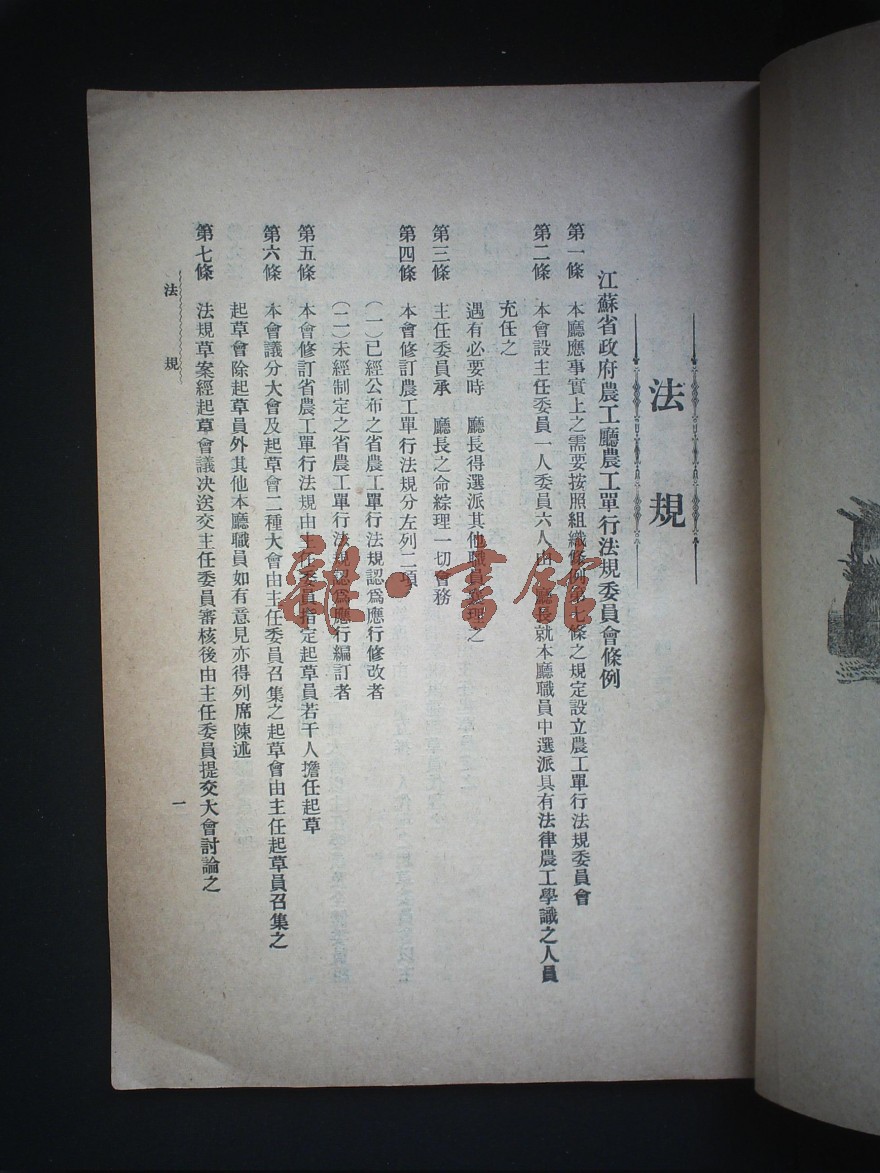 法規
江蘇省政府農工廳農工單行法規委員會條例
第一條 本廳應事實上之需要按照組織條例第七條之規定設立農工單行法規委員會
第二條 本會設主任委員一人委員六人由 廳長就本廳職員中選派具有法律農工學識之人員
充任之
遇有必要時 廳長得選派其他職員 理之
第三條 主任委員承 廳長之命綜理一切會務
第四條 本會修訂農工單行法規分左列二項
(一)已經公布之省農工單行法規認爲應行修改者
(二)未經制定之省農工單行法規認爲應行編訂者
第五條 本會修訂省農工單行法規由主任委員指定起草員若干人擔任起草
第六條 本會議分大會及起草會二種大會由主任委員召集之起草會由主任起草員召集之
起草會除起草員外其他本廳職員如有意見亦得列席陳述
第七條 法規草案經起草會議决送交主任委員審核後由主任委員提交大會討論之
法規
一
雜·書館